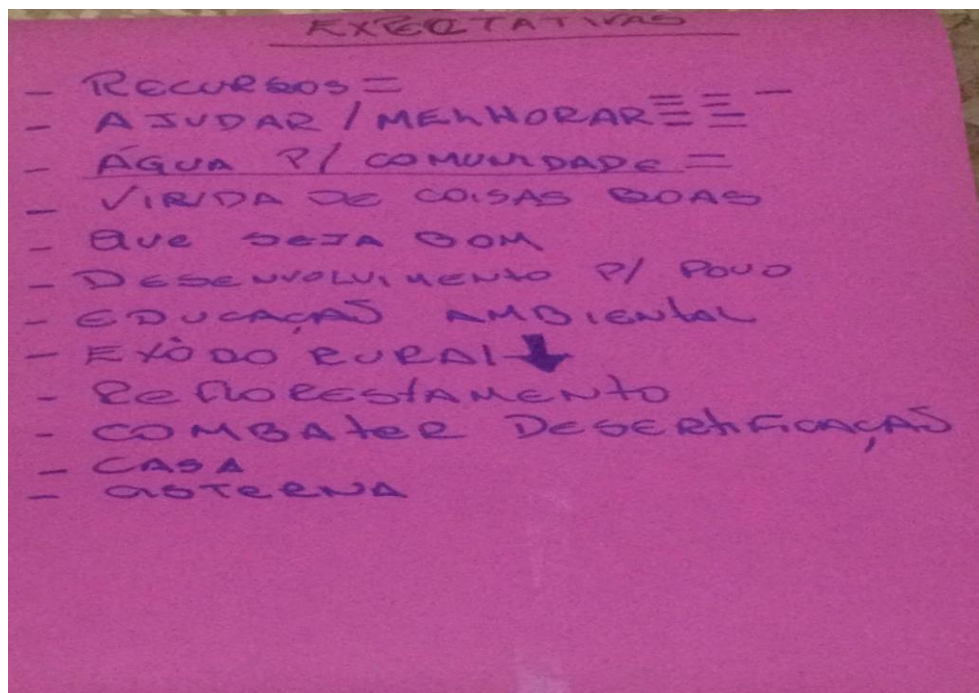 EXPECTATIVAS
- RECURSOS =
- AJUDAR / MELHORAR ≡ ≡ -
- ÁGUA P/ COMUNIDADE =
- VINDA DE COISAS BOAS
- QUE SEJA BOM
- DESENVOLVIMENTO P/ POVO
- EDUCAÇÃO AMBIENTAL
- EXÔDO RURAL ↓
- REFLORESTAMENTO
- COMBATER DESERTIFICAÇÃO
- CASA
- CISTERNA